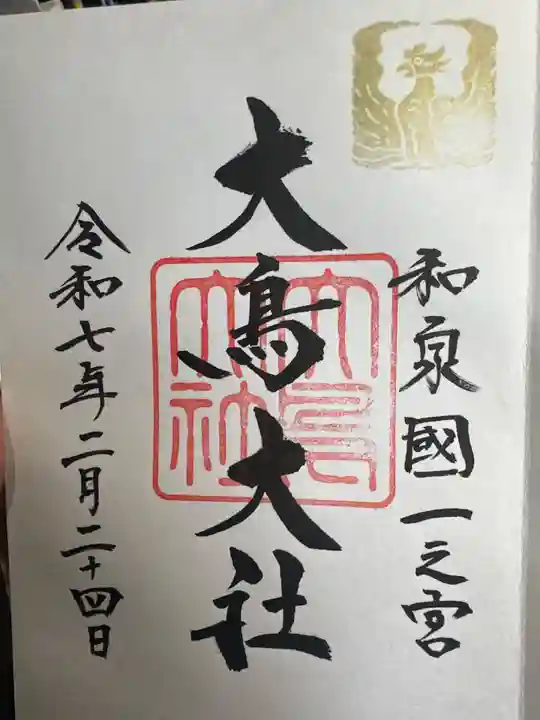 和泉國一之宮
大鳥大社
大鳥大社
令和七年二月二十四日